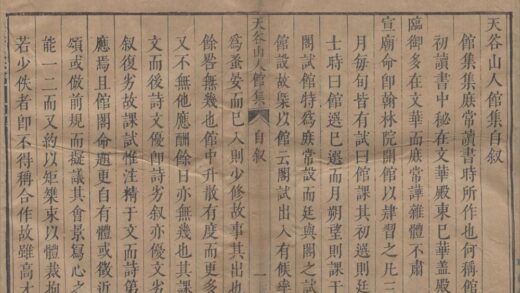 天谷山人館集自叙
館集集庶常讀書時所作也何稱館
初讀書中秘在文華殿東已華蓋殿
臨御多在文華而庶常譁雜體不肅
宣廟命即翰林院開館以肄習之凡三
月每旬皆有試曰館課其初選則廷
士時曰館選已選而月朔望則課于
閣試館特為庶常設而廷與閣之試
館設故槩以館云閣試出入有候率
天谷山人館集 自叙 一
為蚤晏而已入則少修故事其出也
餘晷無幾也館中升散有度而更多
又不無他應酬餘日亦無幾也其課
文而後詩文優即詩劣叙亦優文劣
叙復劣故課試惟注精于文而詩第
應焉且館閣命題更自有體或徵近
頌或倣前規而擬議其會景寫心之
能一二而又約以矩矱束以體裁拘
若少佚者即不得稱合作故雖高才